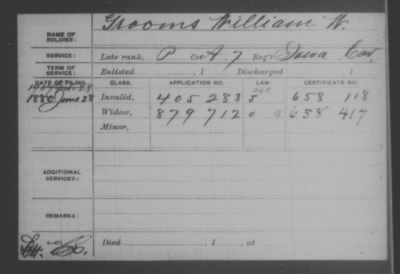 NAME OF SOLDIER: Grooms William W.
SERVICE: Late rank, P Co. A. 7 Reg't Iowa Cav.
TERM OF SERVICE: Enlisted , 1 Discharged , 1
DATE OF FILING. CLASS. APPLICATION NO. LAW. CERTIFICATE NO.
1880 June 28 Invalid, 405 283 658 118
Widow, 879 712 658 417
Minor,
ADDITIONAL SERVICES:
REMARKS:
Died , 1 , at